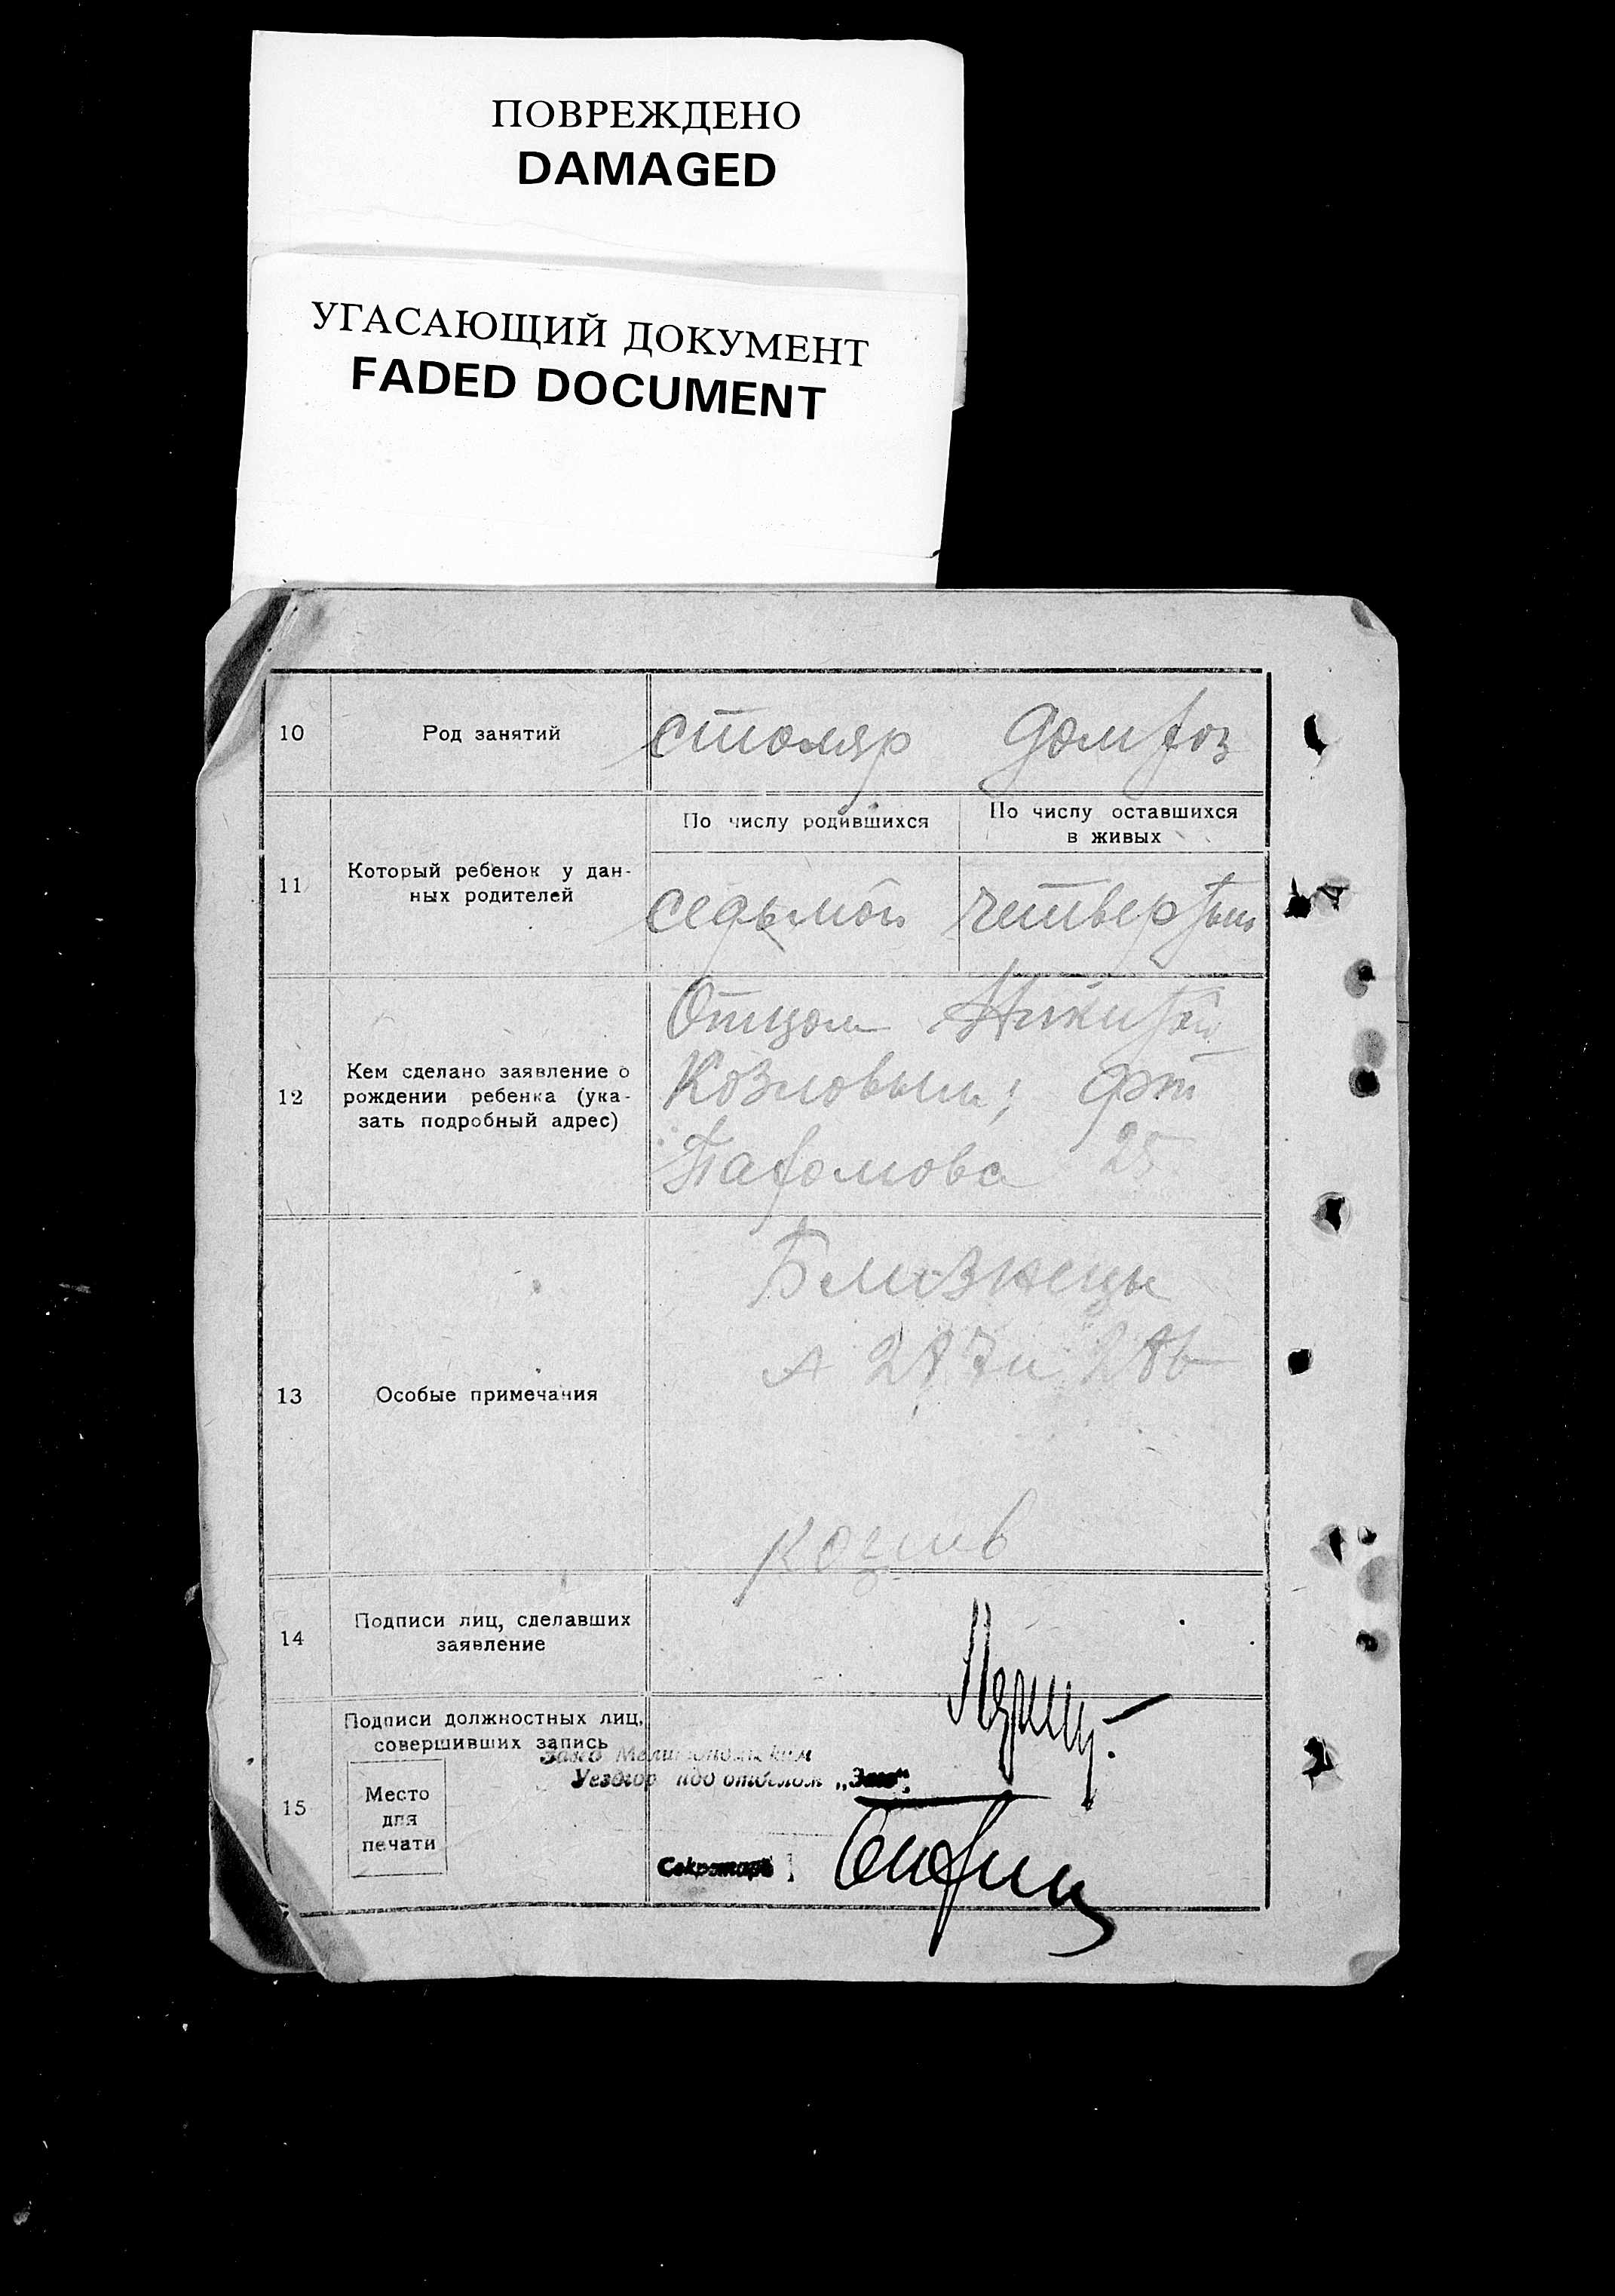 ПОВРЕЖДЕНО
DAMAGED
УГАСАЮЩИЙ ДОКУМЕНТ
FADED DOCUMENT
10
Род занятий
столяр
домхоз
11
Который ребенок у дан-
ных родителей
По числу родившихся
По числу оставшихся
в живых
седьмой
четвертый
12
Кем сделано заявление о
рождении ребенка (ука-
зать подробный адрес)
Отцом Никитой
Козловым;
25
13
Особые примечания
Близнецы
14
Подписи лиц, сделавших
заявление
15
Подписи должностных лиц,
совершивших запись
Место
для
печати
„Загс“.
Секретарь